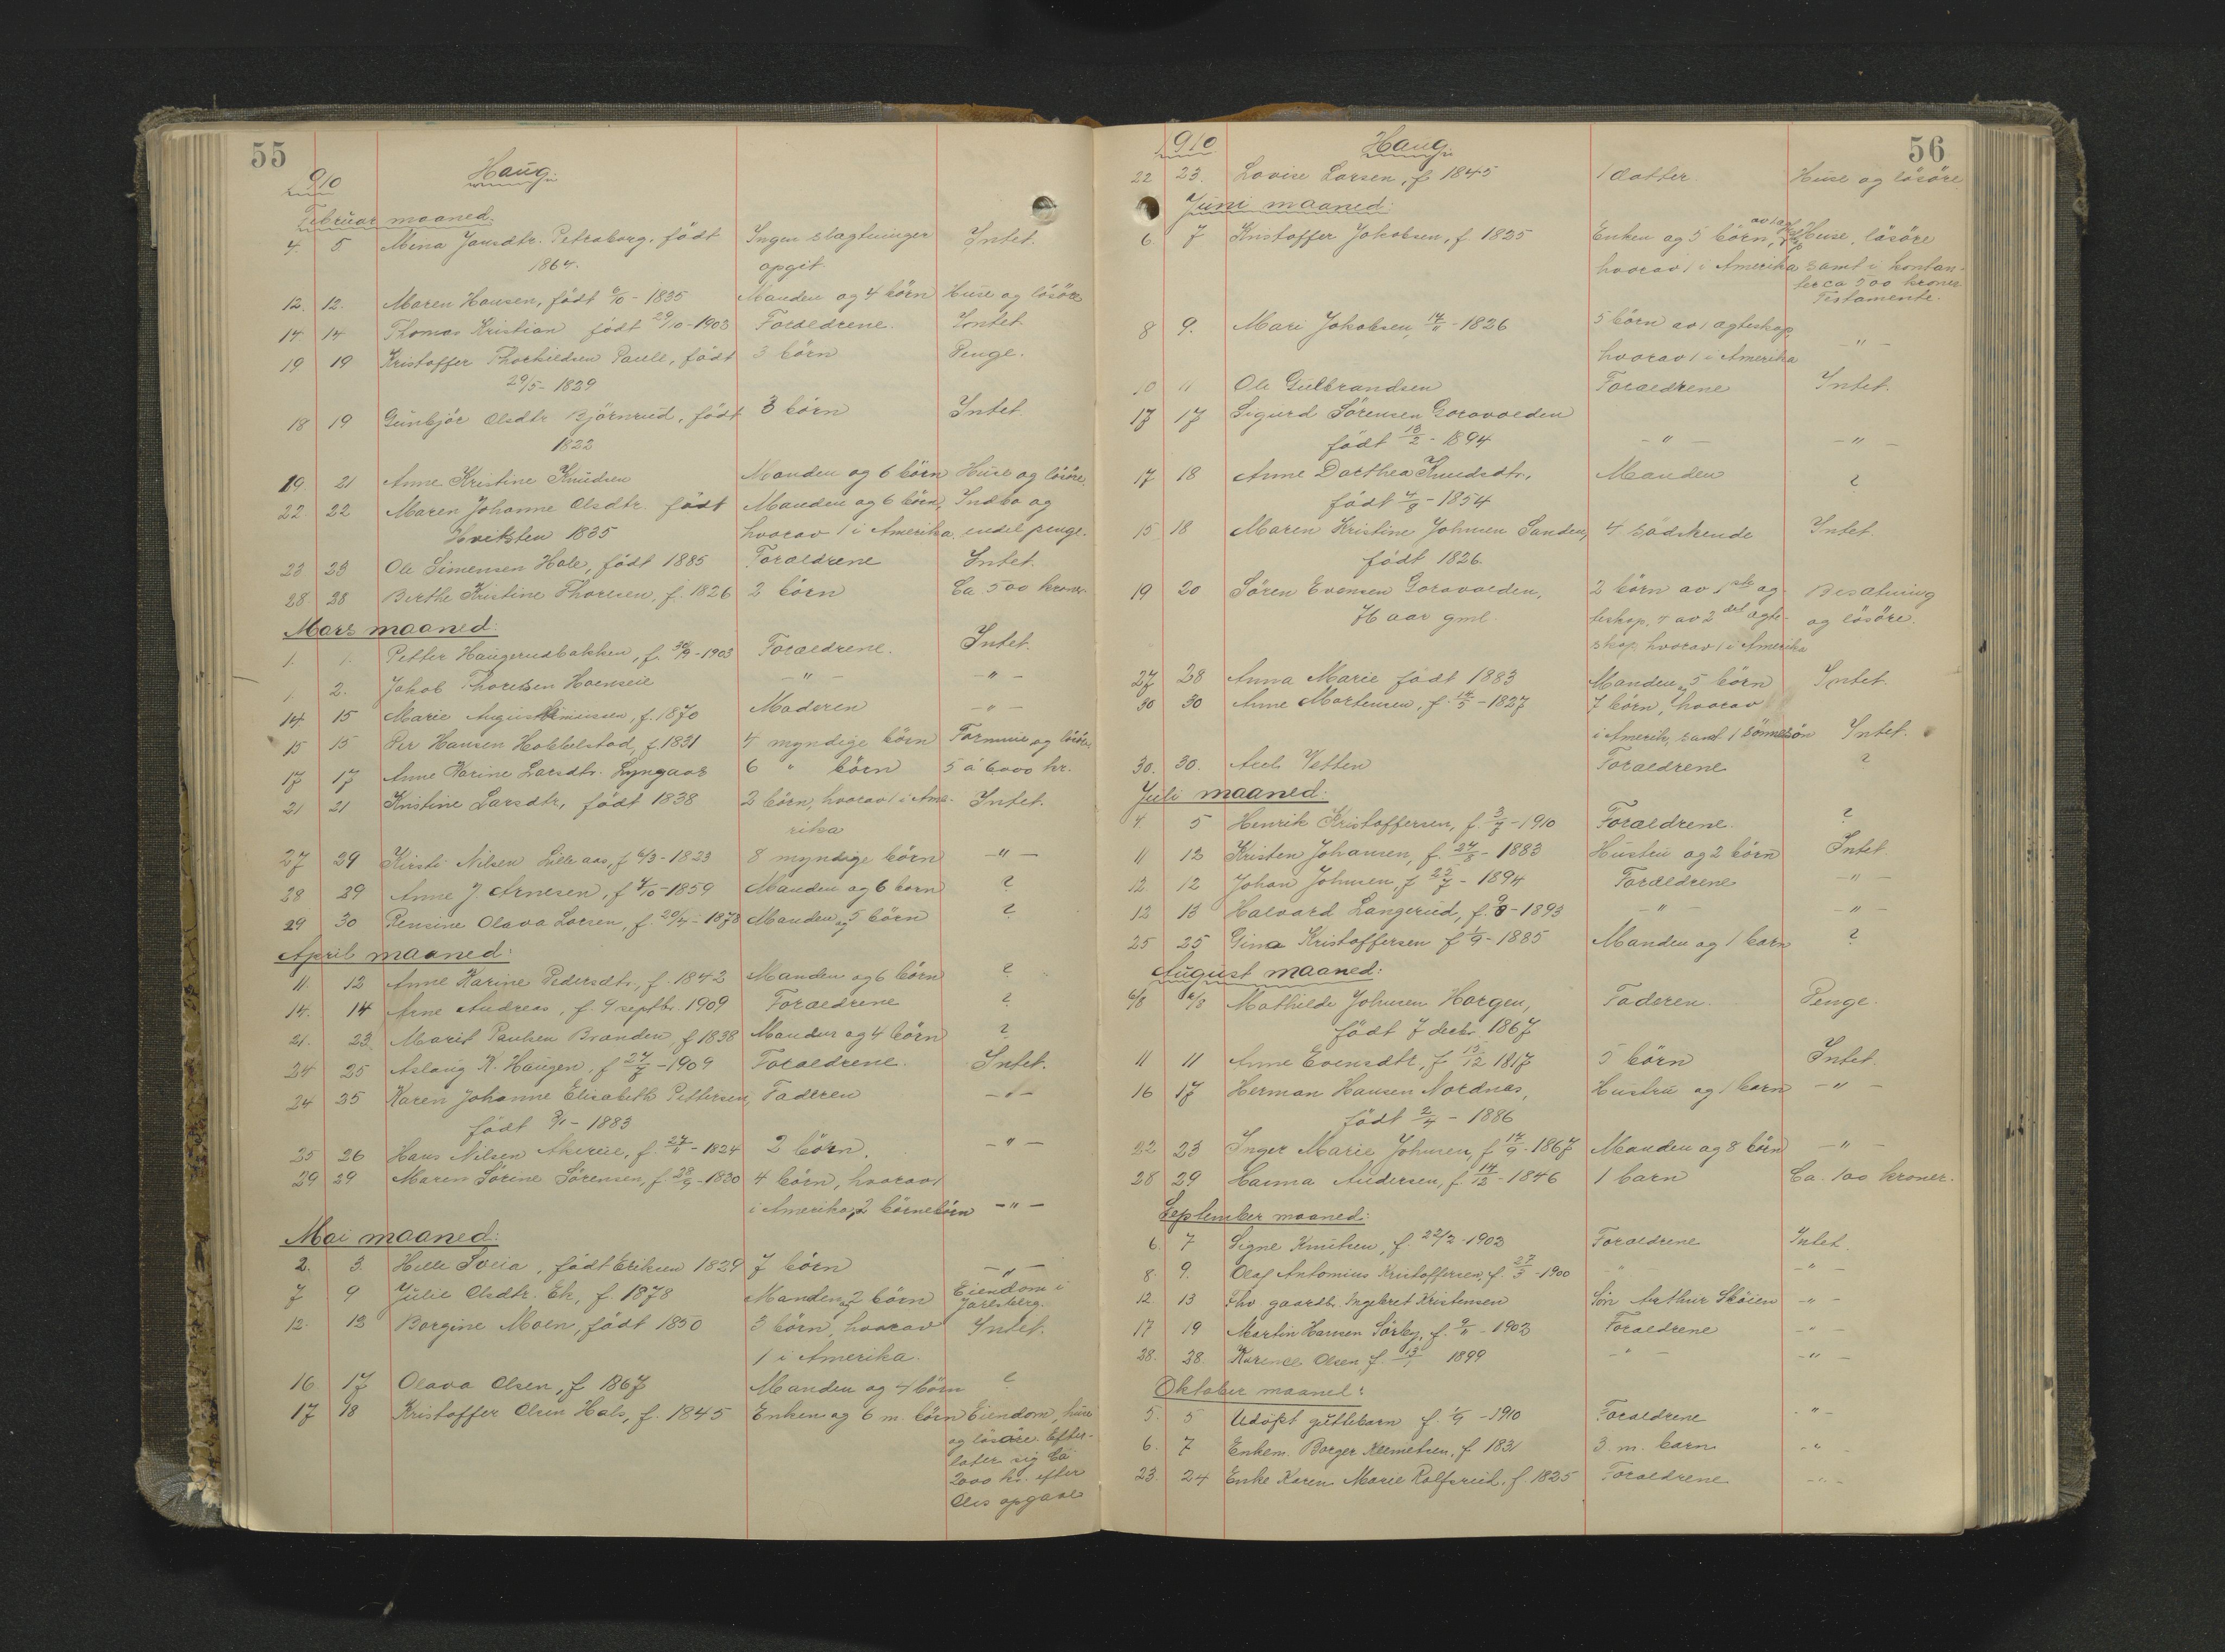 55
910 Haug.
Februar maaned.
4. 5 Mina Jansdtr. Petraborg, född Ingen slagtninger Intet.
1864. opgit.
12. 12. Maren Hansen, födt 6/10 - 1835 Manden og 4 börn Huse og lösöre
14 14 Thomas Kristian födt 29/10 - 1908 Foraeldrene. Intet.
19 19 Kristoffer Thorkildsen Paule, födt 3 börn Penge.
29/5 - 1829
18 19 Gunbjör Olsdtr Björnrud, födt 3 börn Intet.
1822
19 21 Anne Kristine Knudsen Manden og 6 börn Huse og lösöre.
22 22 Maren Johanne Olsdtr. födt Manden og 6 börn, Indbo og
Hviksten 1835 hvorav 1 i Amerika endel penge.
23 23 Ole Simensen Hole, födt 1885 Foraeldrene Intet.
28 28 Birthe Kristine Thoresen, f. 1826 2 börn Ca 500 kroner
Mars maaned:
1. 1. Petter Haugerudbakken, f. 30/9 - 1903 Foraeldrene. Intet.
1. 2. Jakob Thoresen Hoenseie - " - - " -
14 15 Marie August f. 1870 Moderen - " -
15 15 Per Hansen Hobbelstad, f. 1831 4 myndige börn Formue og lösöre
17 17 Anne Karine Larsdtr. Lyngaas 6 " börn 5 à 6000 kr.
21 21 Kristine Larsdtr, födt 1838 2 börn, hvorav 1 i Ame- Intet.
rika
27 29 Kirsti Nilsen Lilleaas, f 6/3 - 1823 8 myndige börn - " -
28 29 Anne J. Arnesen, f 4/10 - 1859 Manden og 6 born ?
29 30 Rensine Olava Larsen, f. 20/4 - 1878 Manden og 5 börn ?
April maaned:
11. 12 Anne Karine Pedersdtr, f. 1842 Manden og 6 börn ?
14. 14 Arne Andreas, f. 9 septbr. 1909 Foraeldrene ?
21. 23. Marit Paulsen Branden, f 1838 Manden og 4 börn ?
24 25 Aslaug K. Haugen, f 24/7 - 1909 Foraeldrene. Intet.
24 25 Karen Johanne Elisabeth Pettersen, Faderen - " -
födt 9/1 - 1883
25 26 Hans Nilsen f. 27/11 - 1824 2 börn. - " -
29 29 Maren Sörine Sörensen, f. 28/9 - 1830 4 börn, hvorav 1
i Amerika, 2 börnebörn - " -
Mai maaned:
2. 3. Helle Sveia, födt Eriksen 1829 7 börn - " -
7 9 Julie Olsdtr. Ek, f. 1878 Manden og 2 börn Eiendom i
Jarlsberg.
12. 13 Borgine Moen, födt 1850 3 börn, hvorav Intet.
1 i Amerika.
16 17 Olava Olsen, f 1867 Manden og 4 börn ?
17 18 Kristoffer Olsen Hals, f. 1845 Enken og 6 m. börn Eiendom, huse
og lösöre. Efter-
later sig Ca
2000 kr. efter
Oles opgave
56
1910 Haug.
22 23. Lovise Larsen, f 1845 1 datter. Huse og lösöre
Juni maaned:
6 7 Kristoffer Jakobsen, f. 1825 Enken og 5 börn, Huse, lösöre
hvorav 1 i Amerika samt i kontan-
ter ca 500 kroner
Testamente.
8 9. Mari Jakobsen, 14/11 - 1826 5 börn av 1 agteskap,
hvorav 1 i Amerika - " -
10 11 Ole Gulbrandsen Foraeldrene Intet.
17 17 Sigurd Sörensen Goravolden
födt 18/2 - 1894 - " - - " -
17 18 Anne Dorthea Knudsdtr, Manden ?
födt 4/8 - 1854
15 18 Maren Kristine Johnsen Sanden, 4 södskende Intet
födt 1826.
19 20 Sören Evensen Goravolden, 2 börn av 1ste ag- Besatning
76 aar gml. teskap, 4 av 2det agte- og lösöre.
skap, hvorav 1 i Amerika
27 28 Anna Marie födt 1883 Manden, 5 börn Intet.
30 30 Anne Mortensen, f. 14/5 - 1827 7 börn, hvorav
i Amerik, samt 1 sönnesön Intet.
30. 30. Vetten Foraeldrene ?
Juli maaned:
4. 5 Henrik Kristoffersen, f. 3/7 - 1910 Foraeldrene. ?
11 12 Kristen Johansen, f. 24/8 - 1883 Hustru og 2 börn Intet
12 12 Johan Johnsen, f 23/7 - 1894 Foraeldrene - " -
12 13 Halvard Langerud, f. 9/8 - 1893 - " - - " -
25 25 Gina Kristoffersen f 1/9 - 1885 Manden og 1 barn ?
August maaned:
6/8 6/8 Mathilde Johnsen Horgen, Faderen. Penge.
födt 7 decbr. 1867
11 11 Anne Evensdtr, f 15/12 1817 5 börn Intet.
16 17 Herman Hansen Nordnas, Hustru og 1 barn - " -
födt 2/4 - 1886
22 23 Inger Marie Johnsen, f 17/9 - 1867 Manden og 8 börn - " -
28 29 Hanna Andersen, f. 14/12 - 1846 1 barn Ca. 100 kroner.
September maaned:
6. 7 Signe Knutsen, f. 22/2 - 1903 Foraeldrene Intet.
8. 9. Olaf Antonius Kristoffersen, f. 27/3 - 1900 - " - - " -
12 13 Fhv. gaardb. Ingebret Kristensen Sön Arthur Sköien - " -
17 19 Martin Hansen Sörby, f. 9/11 - 1902 Foraeldrene - " -
28. 28. Olsen f. 13/1 1899 - " - - " -
Oktober maaned:
5. 5 Udöpt guttebarn f. 1/9 - 1910 Foraeldrene - " -
6. 7 Enkem. Borger Klemetsen, f 1831 3. m. barn - " -
23. 24 Enke Karen Marie Rolfsrud, f. 1825 Foraeldrene - " -